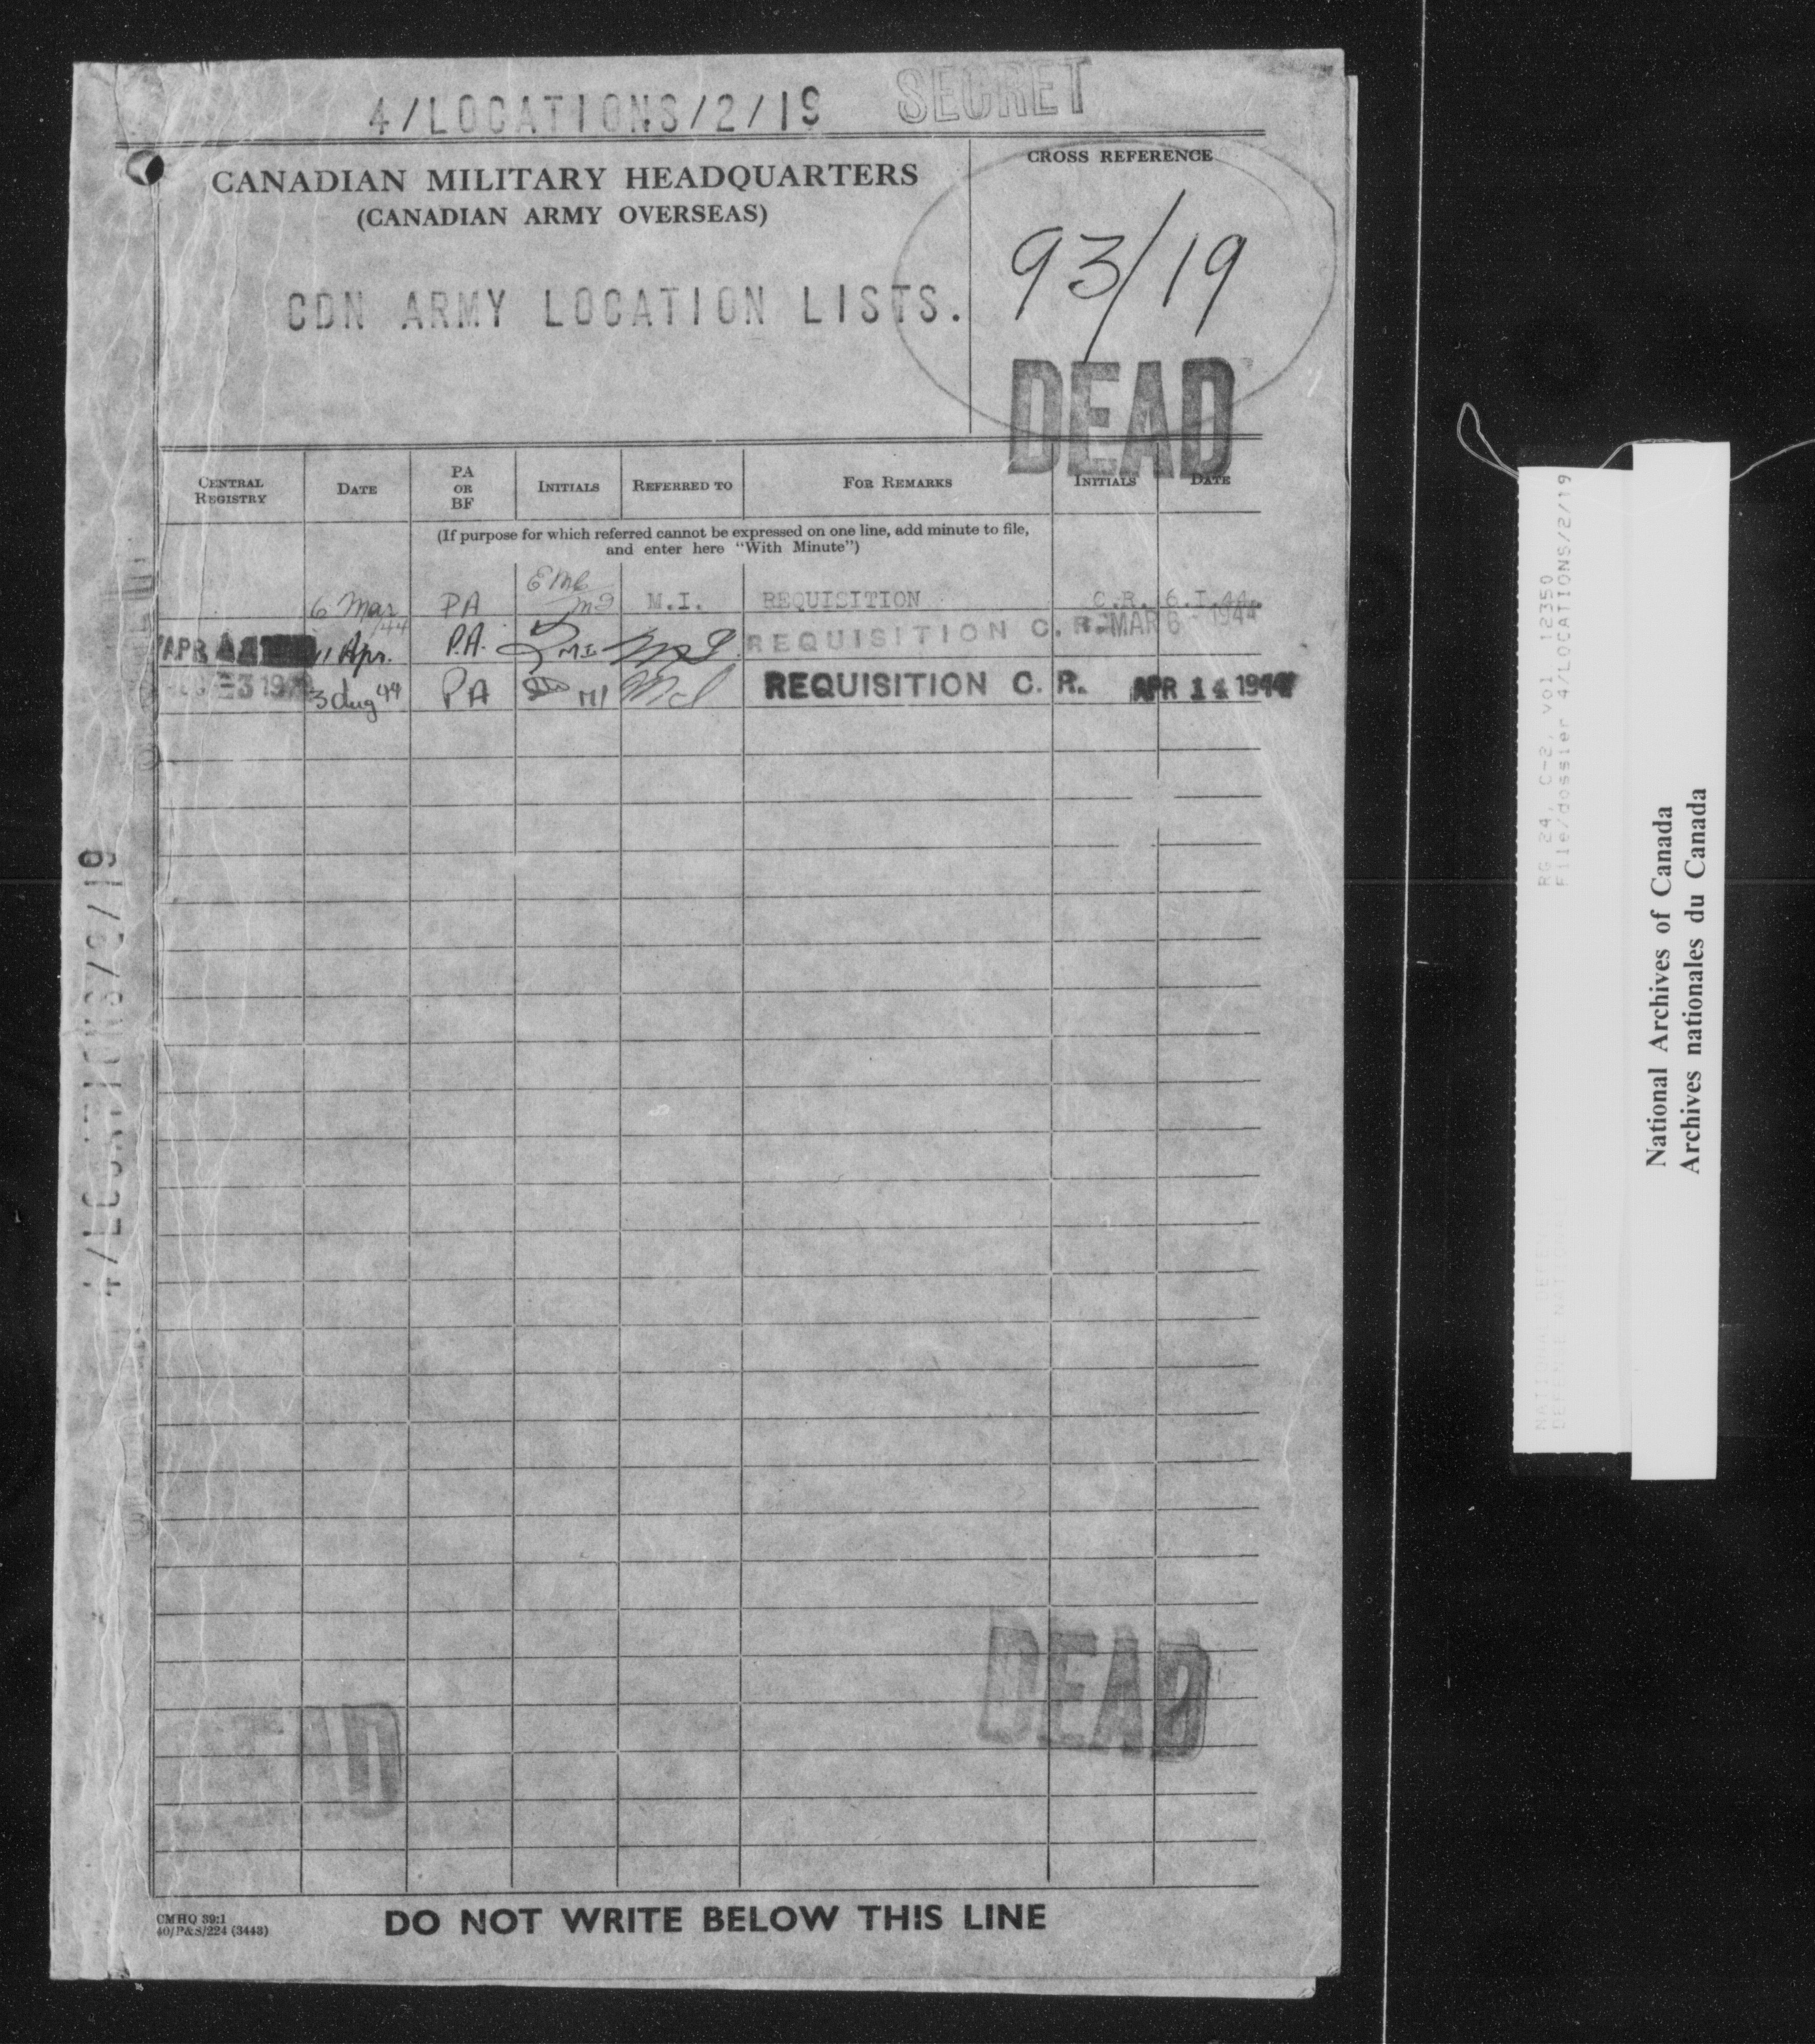 4/LOCATIONS/2/19 SECRET
CANADIAN MILITARY HEADQUARTERS
(CANADIAN ARMY OVERSEAS)
CDN ARMY LOCATION LISTS.
CROSS REFERENCE
93/19
DEAD
CENTRAL REGISTRY DATE PA OR BF INITIALS REFERRED TO FOR REMARKS INITIALS DATE
(If purpose for which referred cannot be expressed on one line, add minute to file,
and enter here "With Minute")
6 Mar/44 PA M.I. REQUISITION C.R. 6.I.44.
APR 11 Apr. P.A. M.I. REQUISITION C. R. MAR 6 - 1944
3 Aug 44 PA MI REQUISITION C. R. APR 14 1944
4/LOCATIONS/2/19
DEAD
DEAD
CMHQ 39:1
40/P&S/224 (3443)
DO NOT WRITE BELOW THIS LINE
RG 24, C-2, vol 12350
File/dossier 4/LOCATIONS/2/19
NATIONAL DEFENCE
DEFENSE NATIONALE
National Archives of Canada
Archives nationales du Canada